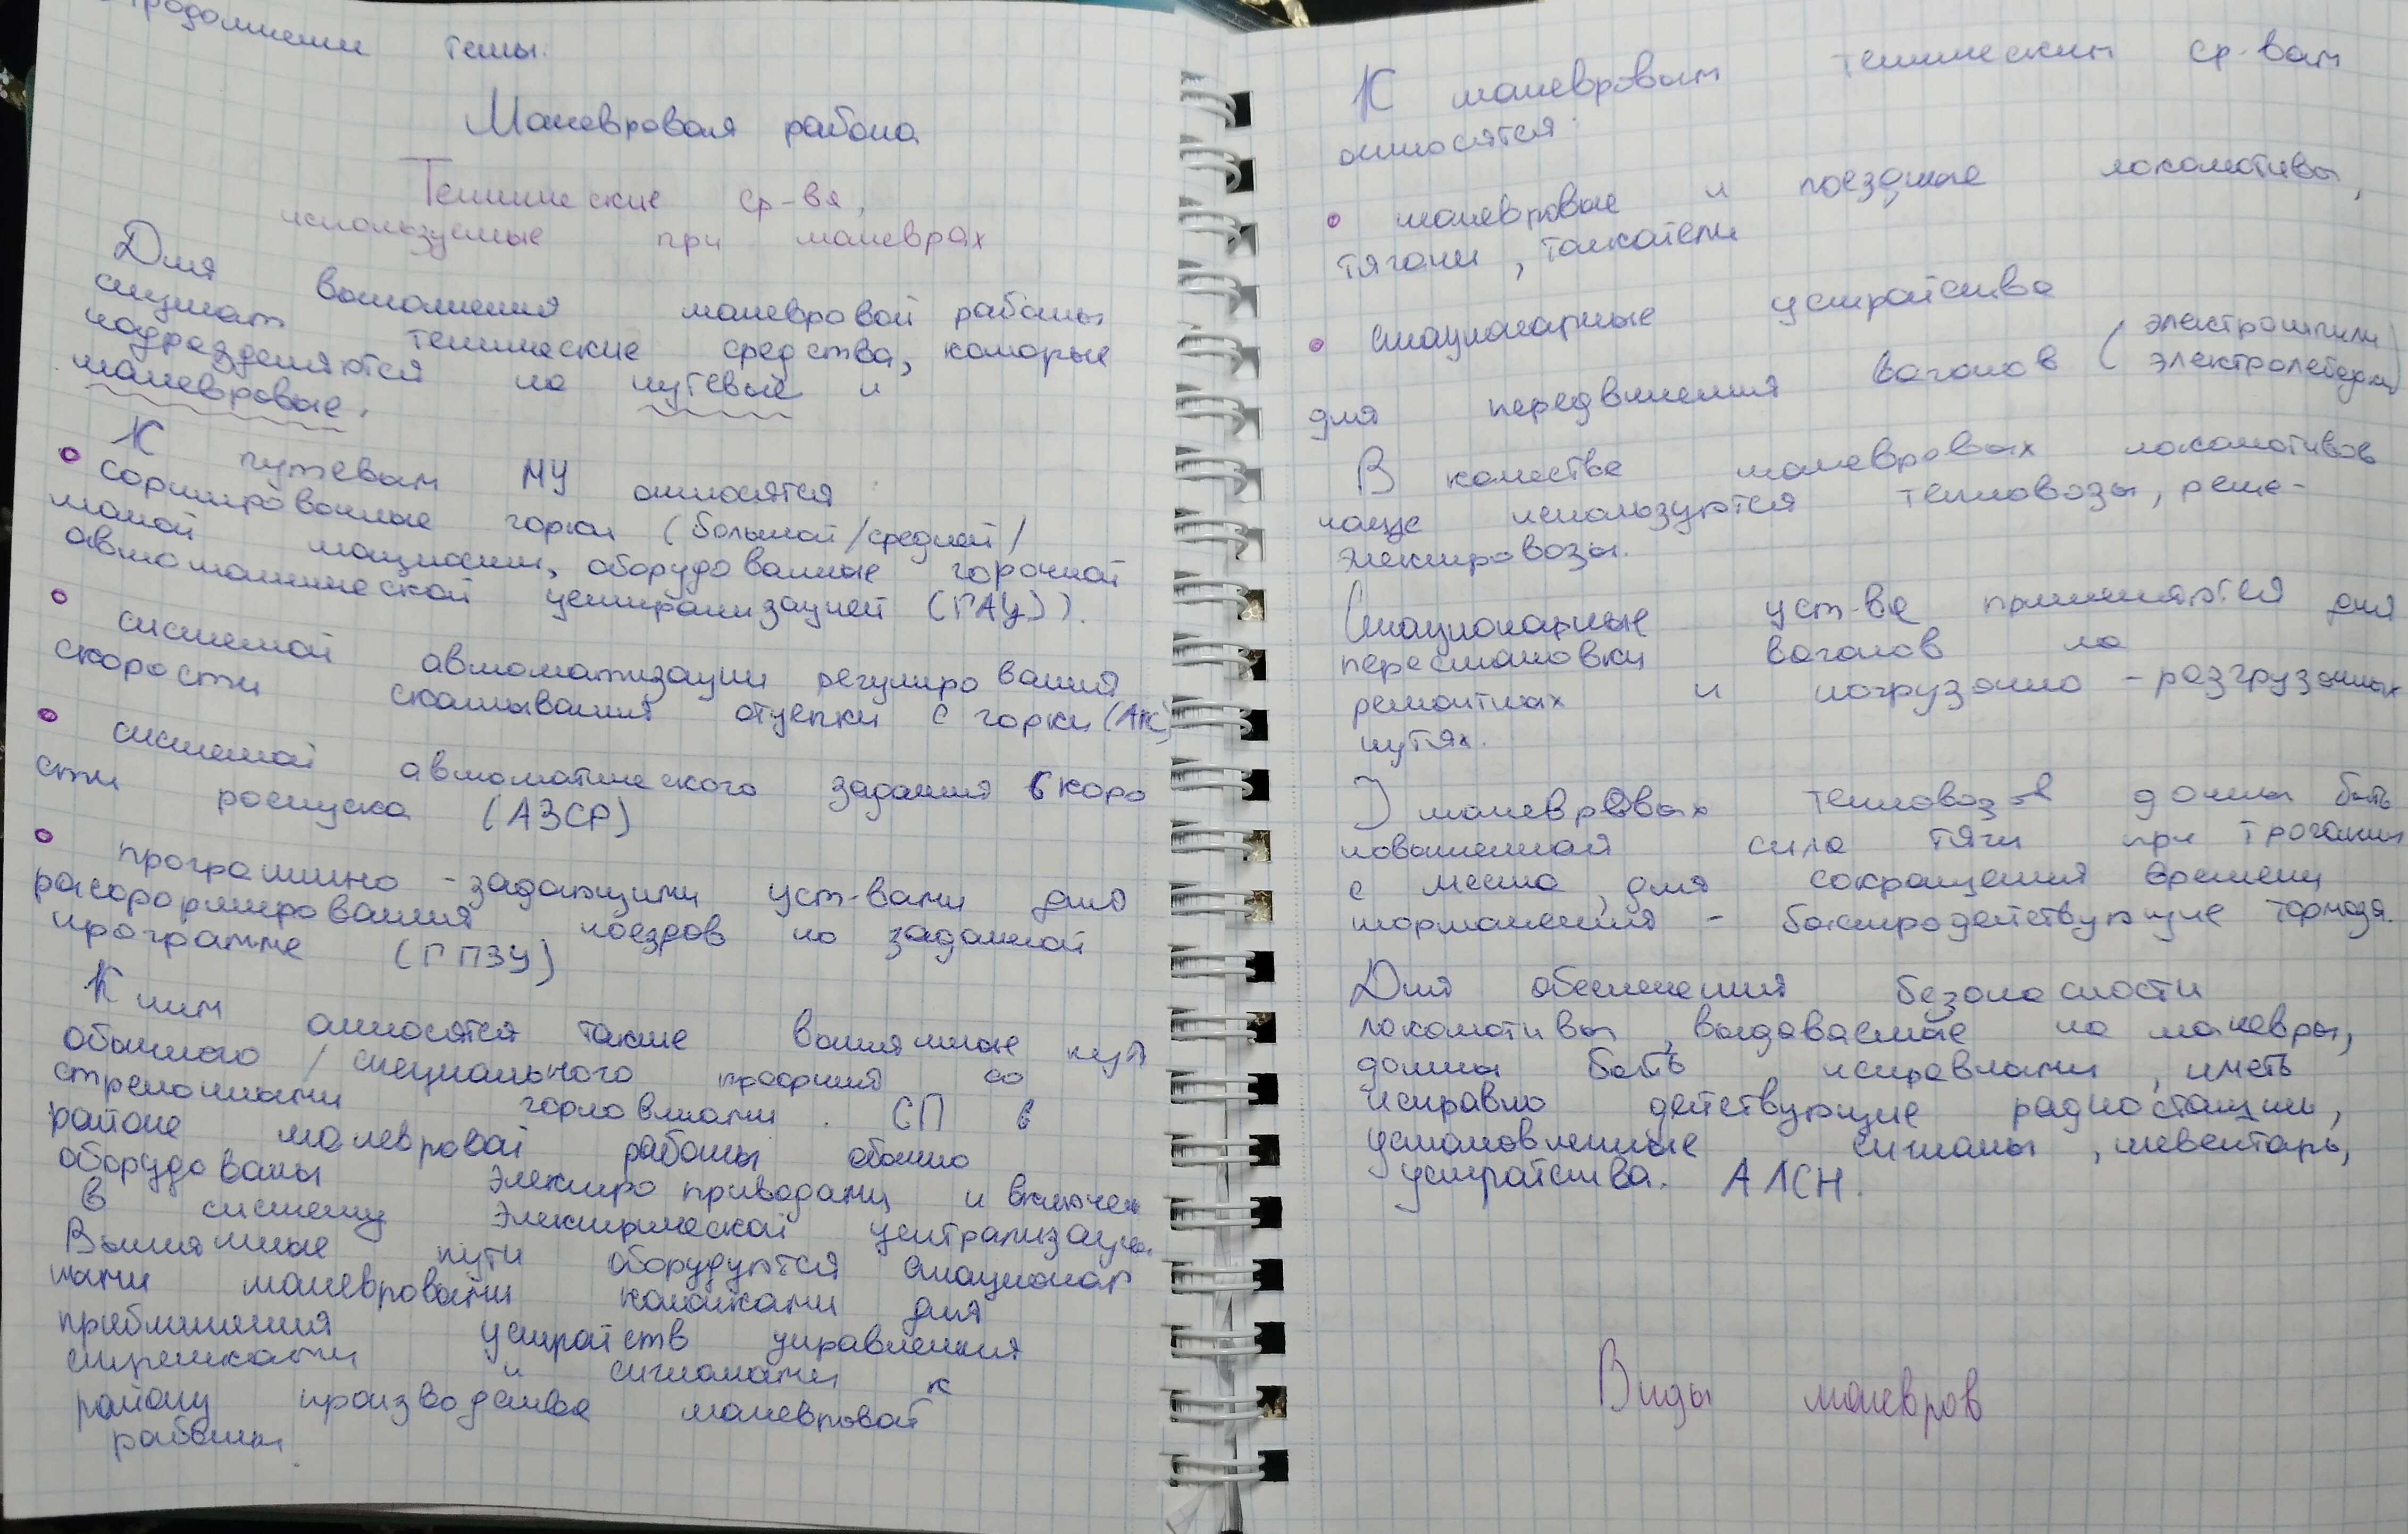 Продолжение темы.
Маневровая работа
Технические ср-ва,
используемые при маневрах
Для выполнения маневровой работы
служат технические средства, которые
подразделяются на путевые и
маневровые.
К путевым МУ относятся:
сортировочные горки (большой/средней/
малой мощности, оборудованные горочной
автоматической централизацией (ГАЦ)).
системой автоматизации регулирования
скорости скатывания отцепки с горки (АРС)
системой автоматического задания скоро
сти роспуска (АЗСР)
программно-задающими уст-вами для
расформирования поездов по заданной
программе (ГПЗУ)
К ним относятся также вытяжные пути
обычного / специального профиля со
стрелочными горловинами. СП в
районе маневровой работы обычно
оборудованы электроприводами и включен
в систему электрической централизации.
Вытяжные пути оборудуются стационар
ными маневровыми колонками для
приближения устройств управления
стрелками и сигналами к
району производства маневровой
работы.
К маневровым техническим ср-вам
относятся:
маневровые и поездные локомотивы,
тягачи, толкатели
стационарные устройства
для передвижения вагонов (электрошпили
электролебедки)
В качестве маневровых локомотивов
чаще используются тепловозы, реже-
электровозы.
Стационарные уст-ва применяются для
перестановки вагонов на
ремонтных и погрузочно-разгрузочных
путях.
У маневровых тепловозов должны быть
повышенная сила тяги при трогании
с места, для сокращения времени
торможения - быстродействующие тормоза.
Для обеспечения безопасности
локомотивы, выдаваемые на маневры,
должны быть исправными, иметь
исправно действующие радиостанции,
установленные сигналы, инвентарь,
устройства. АЛСН.
Виды маневров